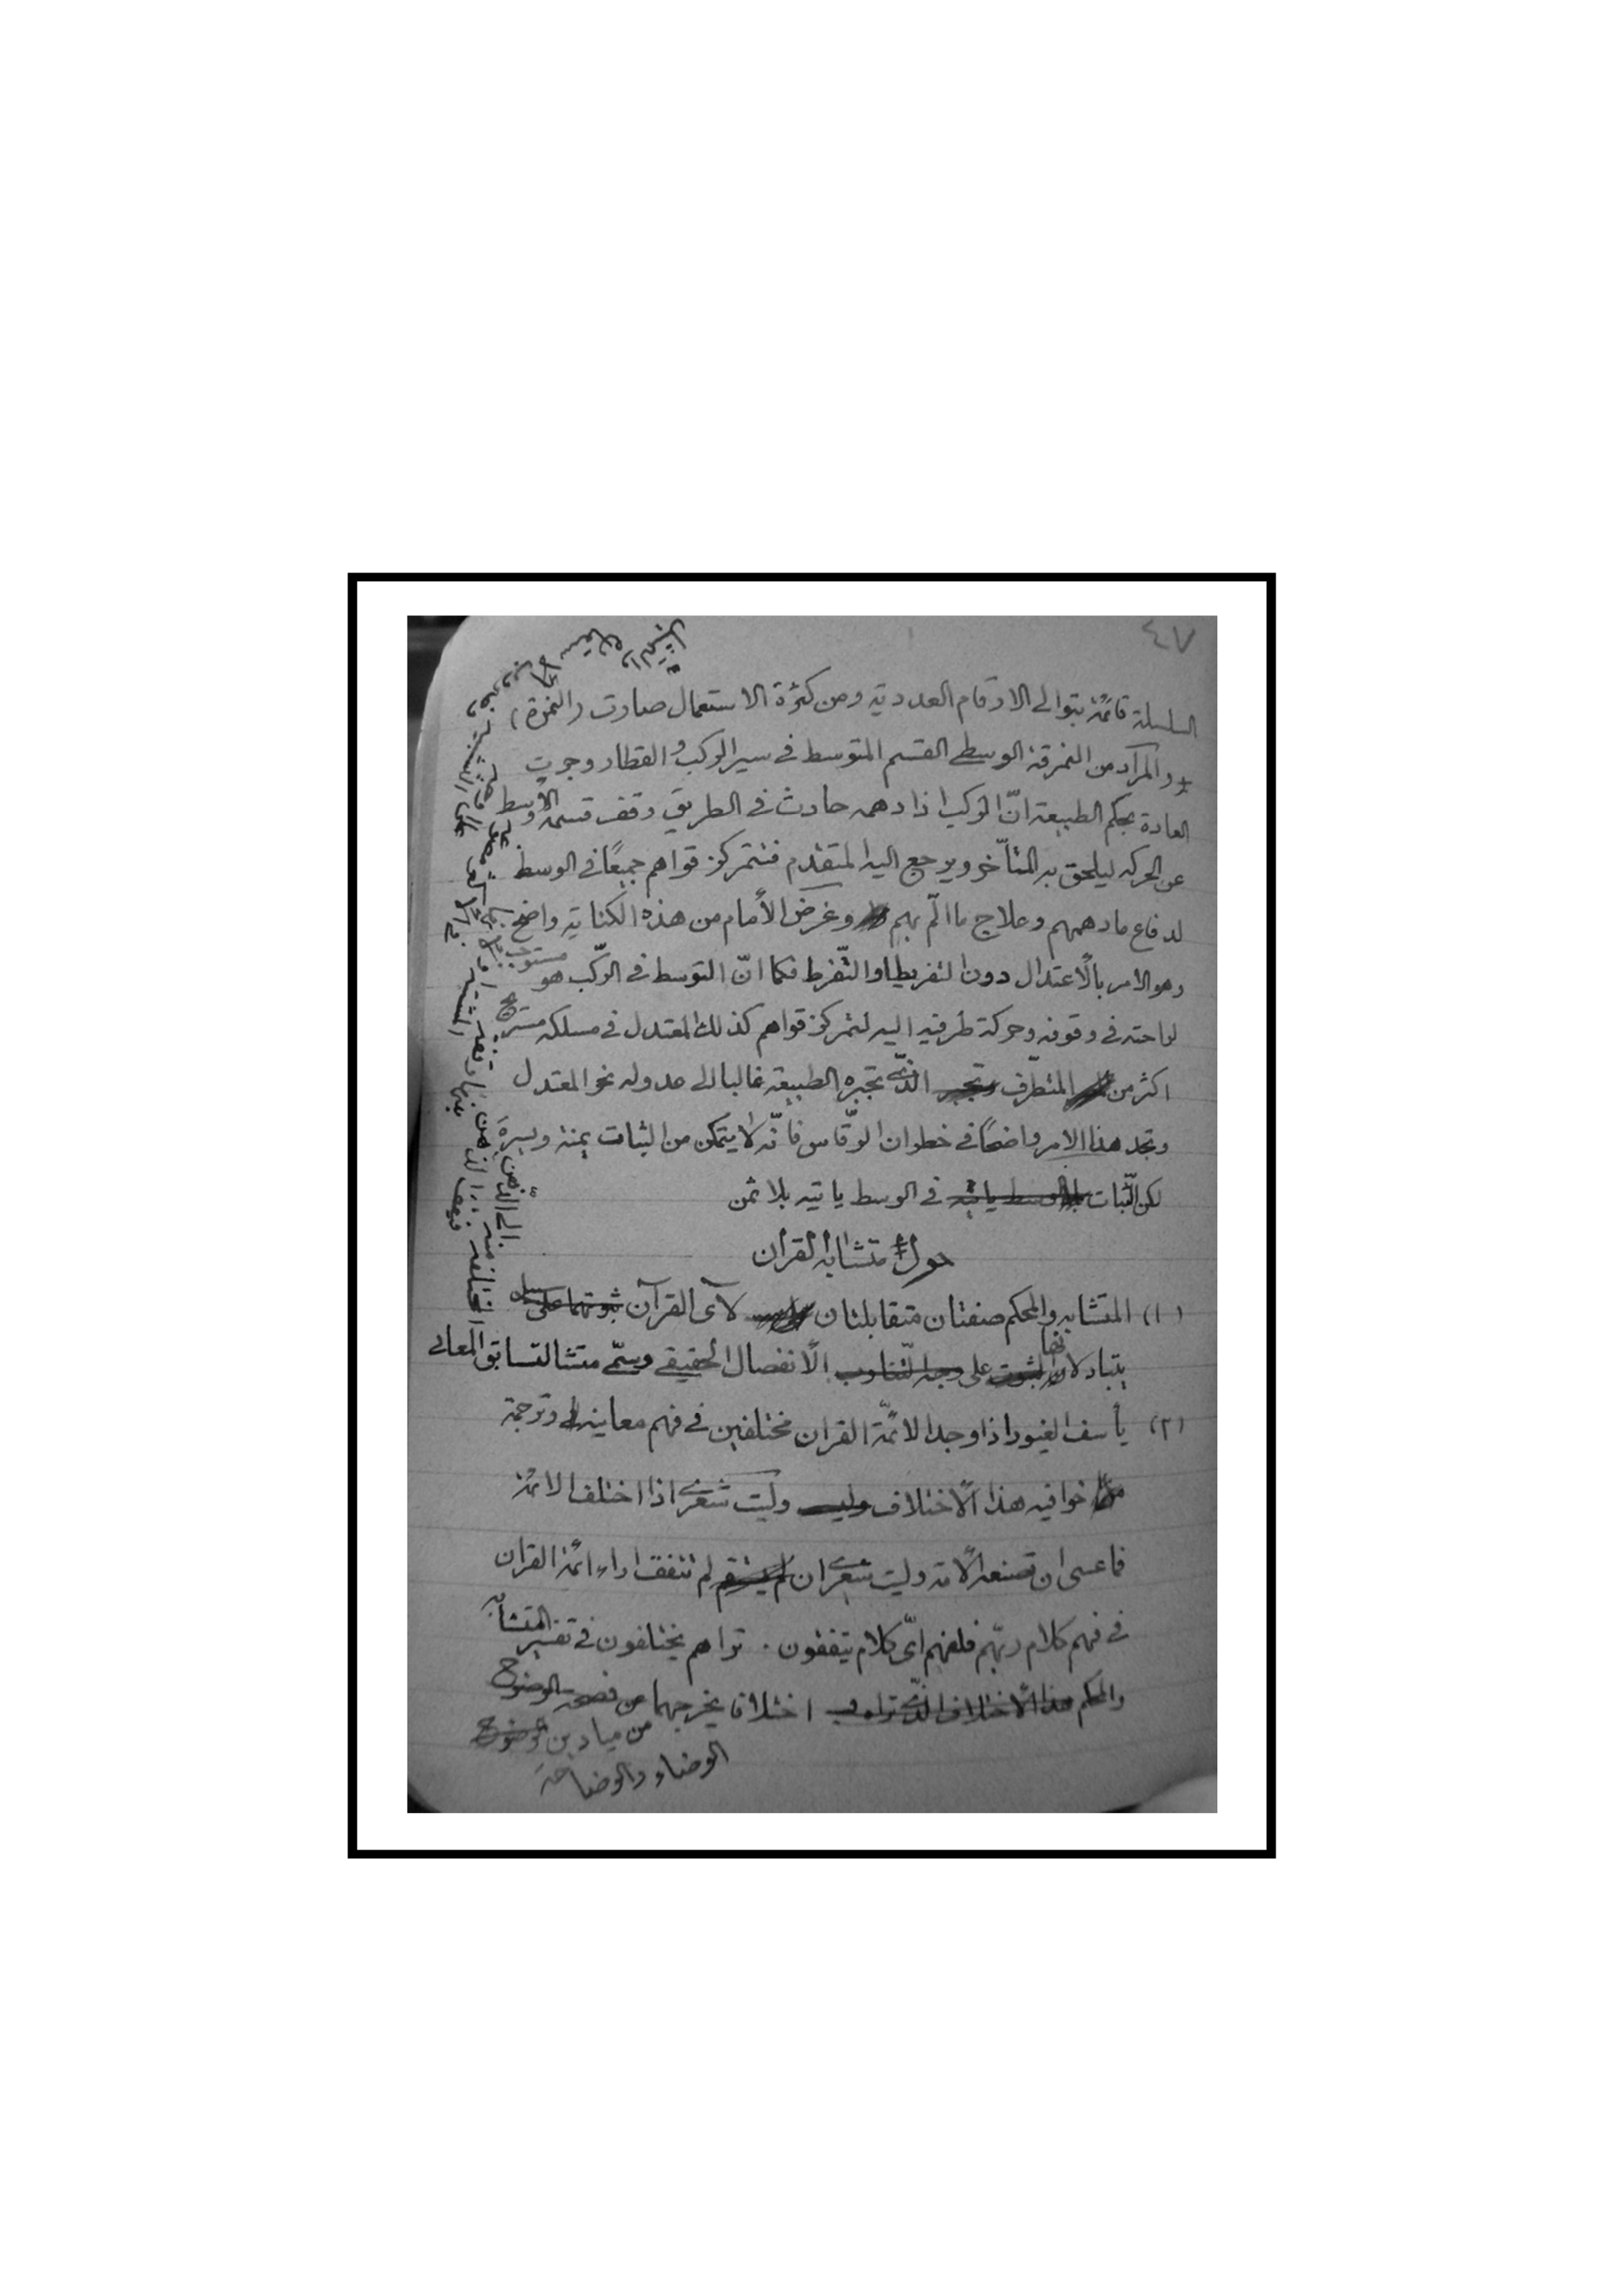 ٤٧
السلسلة قائمة بتوالي الارقام العددية ومن كثرة الاستعمال صارت (النمرة)
والمراد من النمرقة الوسطى القسم المتوسط في سير الركب والقطار وجرت
العادة بحكم الطبيعة انّ الركب اذا دهمه حادث في الطريق وقف قسمه الأوسط
عن الحركه ليلحق به المتأخر ويرجع اليه المتقدم فتتمركز قواهم جميعًا في الوسط
لدفاع ما دهمهم وعلاج ما المّ بهم وغرض الأمام من هذه الكناية واضح
وهو الامر بالأعتدال دون التفريط او التّفرط فكما انّ التوسط في الركب هو مستوجب
لراحته في وقوفه وحركة طرفيه اليه لتمركز قواهم كذلك المعتدل في مسلكه مستريح
اكثر من المتطرّف الذي تجبره الطبيعة غالبا الى عدوله نحو المعتدل
وتجد هذا الامر واضحًا في خطوات الرقّاس فانّه لا يتمكن من الثبات يمنة ويسرة
لكن الثّبات في الوسط ياتيه بلا ثمن
حول متشابه القران
(١) المتشابه والمحكم صنفتان متقابلتان لآى القرآن
يتبادلانها على الأنفصال الحقيقي وسمّي متشا لتسابق المعاني
(٢) يأسف الغيور اذا وجد الائمّة القران مختلفين في فهم معانيه وترجمة
خوافيه هذا الأختلاف وليت شعري اذا اختلف الائمة
فاعسى ان تصنعه الأمة وليت شعري ان لم تتفق اراء ائمة القران
في فهم كلام ربّهم فلفهم ايّ كلام يتفقون . تراهم يختلفون في تفسير المتشابه
والمحكم اختلافا يخرجهما
من ميادين
الوضاء والوضاحة